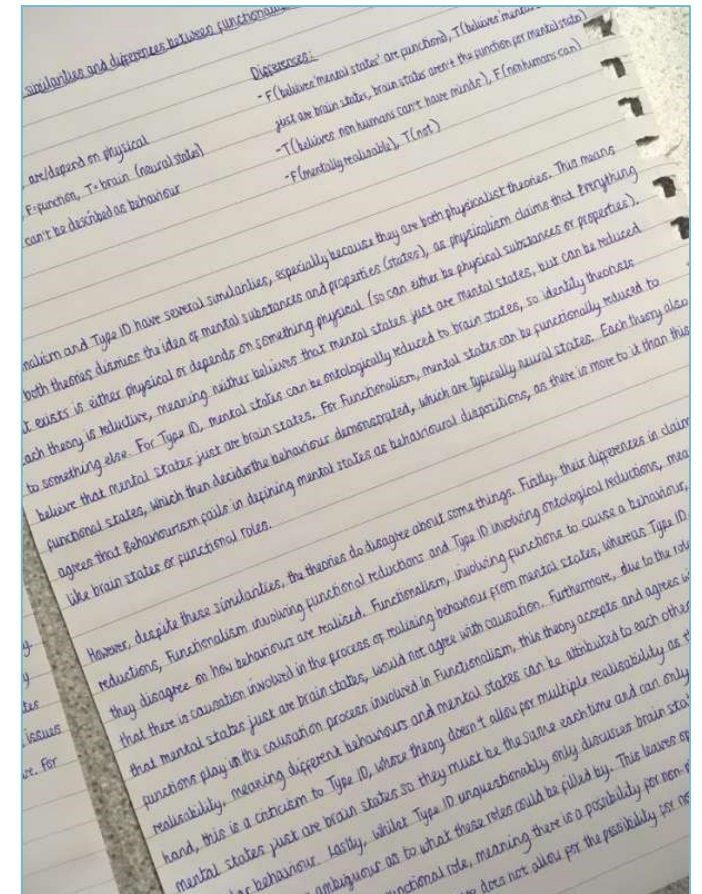 similarities and differences between functional
Differences:
-F(believes 'mental states' are functions), T(believes 'mental
just are brain states, brain states aren't the function for mental states)
-T(believes non humans can't have minds), F(nonhumans can)
-F(mentally realisable), T(not)
are/depend on physical
F=function, T=brain (neural states)
can't be described as behaviour
nalism and Type ID have several similarities, especially because they are both physicalist theories. This means
both theories dismiss the idea of mental substances and properties (states), as physicalism claims that everything
t exists is either physical or depends on something physical (so can either be physical substances or properties).
ach theory is reductive, meaning neither believes that mental states just are mental states, but can be reduced
to something else. For Type ID, mental states can be ontologically reduced to brain states, so identity theorists
believe that mental states just are brain states. For Functionalism, mental states can be functionally reduced to
functional states, which then decides the behaviour demonstrated, which are typically neural states. Each theory also
agrees that Behaviourism fails in defining mental states as behavioural dispositions, as there is more to it than this
like brain states or functional roles.
However, despite these similarities, the theories do disagree about some things. Firstly, their differences in claim
reductions, Functionalism involving functional reductions and Type ID involving ontological reductions, mea
they disagree on how behaviours are realised. Functionalism, involving functions to cause a behaviour,
that there is causation involved in the process of realising behaviour from mental states, whereas Type ID
that mental states just are brain states, would not agree with causation. Furthermore, due to the role
functions play in the causation process involved in Functionalism, this theory accepts and agrees wi
realisability, meaning different behaviours and mental states can be attributed to each other
hand, this is a criticism to Type ID, whose theory doesn't allow for multiple realisability as
mental states just are brain states so they must be the same each time and can only
behaviour. Lastly, whilst Type ID unquestionably only discusses brain stat
ambiguous as to what these roles could be filled by. This leaves op
functional role, meaning there is a possibility for non-
does not allow for the possibility for no
y.
y
tes
issues
ve. For